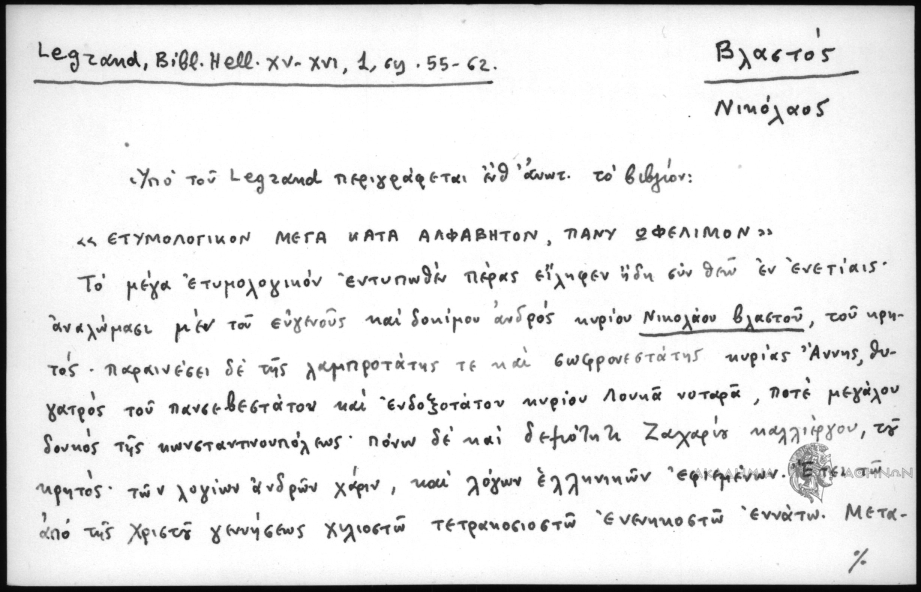 Legrand, Bibl. Hell. XV-XVI, 1, σχ. 55-62.
Βλαστός
Νικόλαος
Ὑπὸ τοῦ Legrand περιγράφεται ἐνθ' ἀνωτ. τὸ βιβλίον:
«ΕΤΥΜΟΛΟΓΙΚΟΝ ΜΕΓΑ ΚΑΤΑ ΑΛΦΑΒΗΤΟΝ, ΠΑΝΥ ΩΦΕΛΙΜΟΝ»
Τὸ μέγα ἐτυμολογικόν ἐντυπωθὲν πέρας εἴληφεν ἤδη σὺν θεῷ ἐν ἐνετίαις·
ἀναλώμασι μὲν τοῦ εὐγενοῦς καὶ δοκίμου ἀνδρός κυρίου Νικολάου βλαστοῦ, τοῦ κρη-
τός· παραινέσει δὲ τῆς λαμπροτάτης τε καὶ σωφρονεστάτης κυρίας Ἄννης, θυ-
γατρὸς τοῦ πανσεβεστάτου καὶ ἐνδοξοτάτου κυρίου Λουκᾶ νοταρᾶ, ποτὲ μεγάλου
δουκός τῆς κωνσταντινουπόλεως· πόνῳ δὲ καὶ δεξιότητι Ζαχαρίου καλλιέργου, τοῦ
κρητός· τῶν λογίων ἀνδρῶν χάριν, καὶ λόγων ἑλληνικῶν ἐφιεμένων. Ἔτει τῷ
ἀπὸ τῆς Χριστοῦ γεννήσεως χιλιοστῷ τετρακοσιοστῷ ἐνενηκοστῷ ἐννάτῳ. Μετα-
%
ΑΚΑΔΗΜΙΑ ΑΘΗΝΩΝ